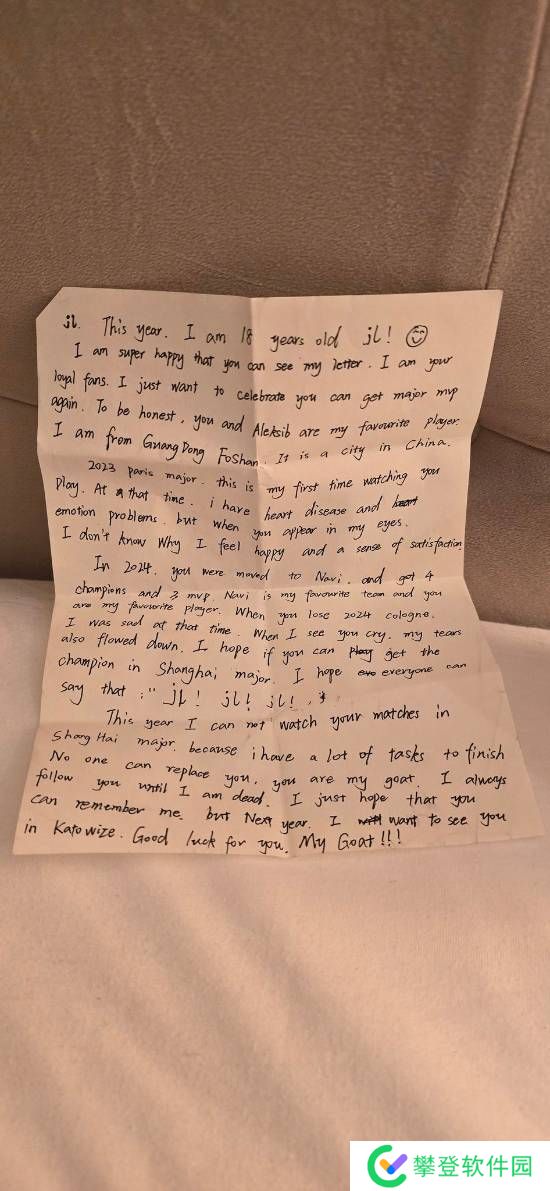 jl. This year. I am 18 years old jl!
I am super happy that you can see my letter. I am your
loyal fans. I just want to celebrate you can get major mvp
again. To be honest, you and Aleksib are my favourite player.
I am from GuangDong FoShan. It is a city in China.
2023 paris major. this is my first time watching you
play. At that time. i have heart disease and
emotion problems. but when you appear in my eyes.
I don't know why I feel happy and a sense of satisfaction
In 2024. you were moved to Navi. and got 4
champions and 3 mvp. Navi is my favourite team and you
are my favourite player. When you lose 2024 cologne.
I was sad at that time. When I see you cry. my tears
also flowed down. I hope if you can get the
champion in Shanghai major. I hope everyone can
say that : " jl! jl! jl! "
This year I can not watch your matches in
Shang Hai major. because i have a lot of tasks to finish
No one can replace you, you are my goat. I always
follow you until I am dead. I just hope that you
can remember me. but Next year. I want to see you
in Katowize. Good luck for you. My Goat!!!
攀登软件园